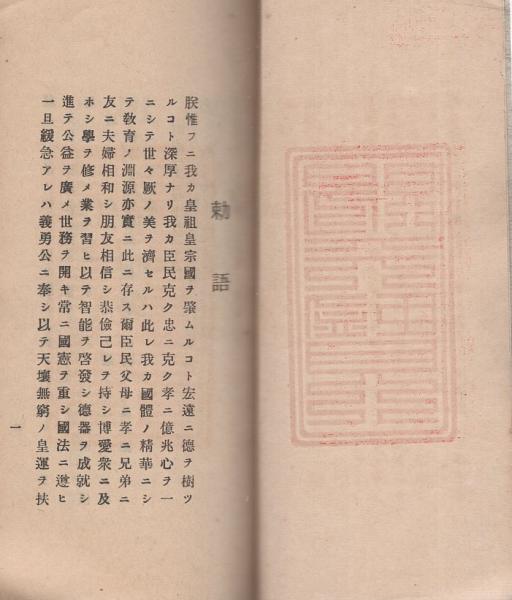 勅語
朕惟フニ我カ皇祖皇宗國ヲ肇ムルコト宏遠ニ德ヲ樹ツ
ルコト深厚ナリ我カ臣民克ク忠ニ克ク孝ニ億兆心ヲ一
ニシテ世々厥ノ美ヲ濟セルハ此レ我カ國體ノ精華ニシ
テ敎育ノ淵源亦實ニ此ニ存ス爾臣民父母ニ孝ニ兄弟ニ
友ニ夫婦相和シ朋友相信シ恭儉己レヲ持シ博愛衆ニ及
ホシ學ヲ修メ業ヲ習ヒ以テ智能ヲ啓發シ德器ヲ成就シ
進テ公益ヲ廣メ世務ヲ開キ常ニ國憲ヲ重シ國法ニ遵ヒ
一旦緩急アレハ義勇公ニ奉シ以テ天壤無窮ノ皇運ヲ扶
一